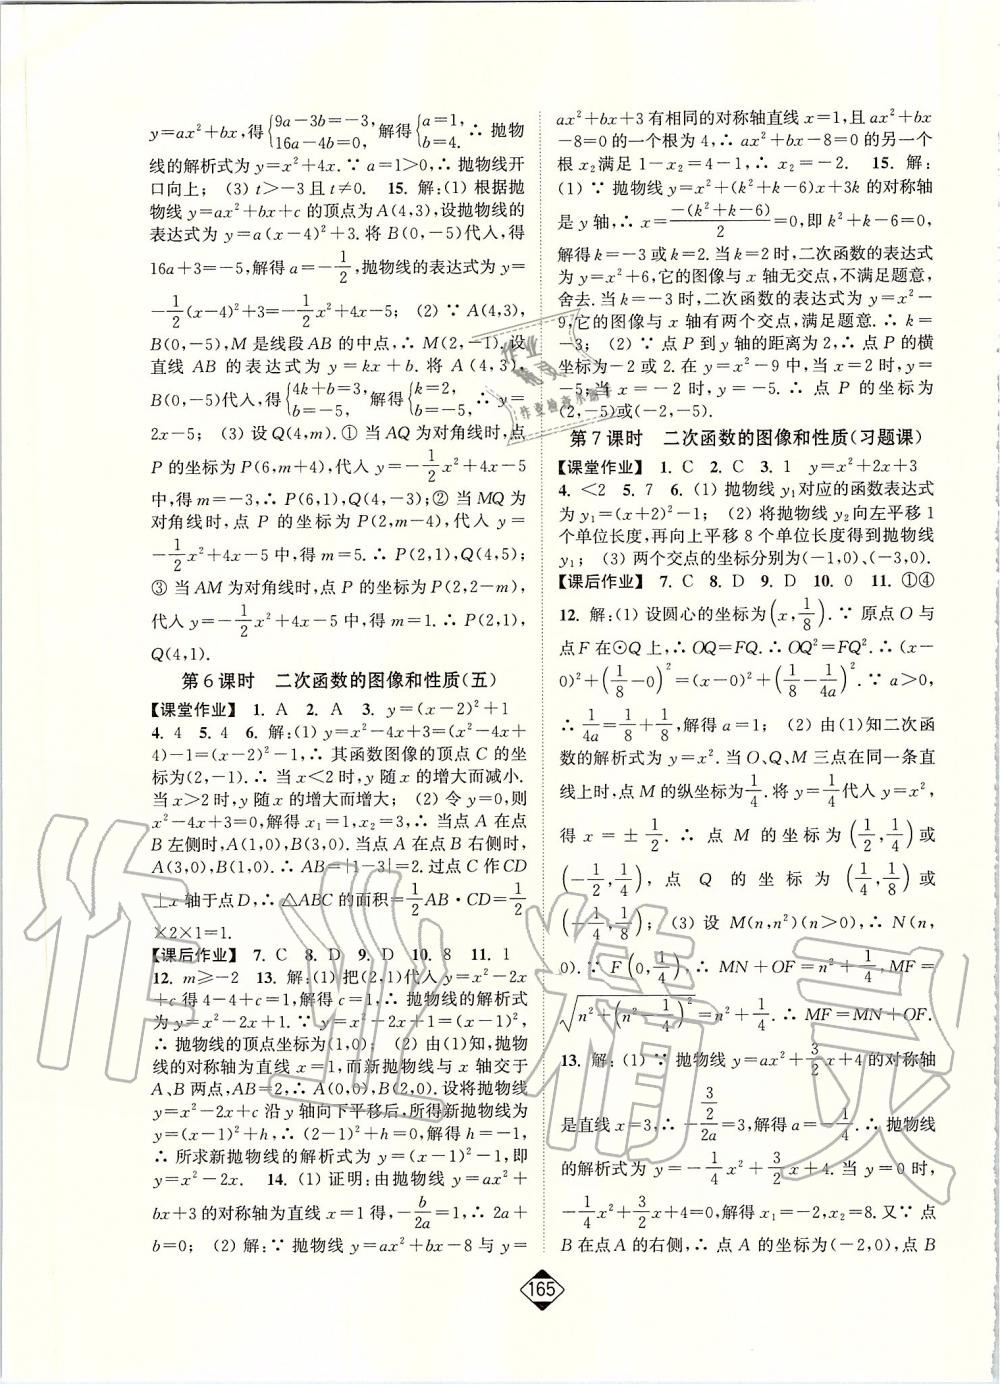 y=ax²+bx,得{9a-3b=-3, 16a-4b=0, 解得{a=1, b=4. ∴ 抛物
线的解析式为 y=x²+4x. ∵ a=1>0,∴ 抛物线开
口向上; (3) t>-3 且 t≠0. 15. 解:(1) 根据抛
物线 y=ax²+bx+c 的顶点为 A(4,3),设抛物线的
表达式为 y=a(x-4)²+3. 将 B(0,-5)代入,得
16a+3=-5,解得 a=-1/2,抛物线的表达式为 y=
-1/2(x-4)²+3=-1/2x²+4x-5; (2) ∵ A(4,3),
B(0,-5),M 是线段 AB 的中点,∴ M(2,-1). 设
直线 AB 的表达式为 y=kx+b. 将 A(4,3),
B(0,-5)代入,得{4k+b=3, b=-5, 解得{k=2, b=-5. ∴ y=
2x-5; (3) 设 Q(4,m). ① 当 AQ 为对角线时,点
P 的坐标为 P(6,m+4),代入 y=-1/2x²+4x-5
中,得 m=-3,∴ P(6,1),Q(4,-3);② 当 MQ 为
对角线时,点 P 的坐标为 P(2,m-4),代入 y=
-1/2x²+4x-5 中,得 m=5. ∴ P(2,1),Q(4,5);
③ 当 AM 为对角线时,点 P 的坐标为 P(2,2-m),
代入 y=-1/2x²+4x-5 中,得 m=1. ∴ P(2,1),
Q(4,1).
第 6 课时 二次函数的图像和性质(五)
【课堂作业】 1. A 2. A 3. y=(x-2)²+1
4. 4 5. 4 6. 解:(1) y=x²-4x+3=(x²-4x+
4)-1=(x-2)²-1,∴ 其函数图像的顶点 C 的坐
标为(2,-1). ∴ 当 x<2 时,y 随 x 的增大而减小.
当 x>2 时,y 随 x 的增大而增大; (2) 令 y=0,则
x²-4x+3=0,解得 x₁=1,x₂=3,∴ 当点 A 在点
B 左侧时,A(1,0),B(3,0). 当点 A 在点 B 右侧时,
A(3,0),B(1,0). ∴ AB=|1-3|=2. 过点 C 作 CD
⊥x 轴于点 D,∴ △ABC 的面积=1/2AB·CD=1/2
×2×1=1.
【课后作业】 7. C 8. D 9. D 10. 8 11. 1
12. m≥-2 13. 解:(1) 把(2,1)代入 y=x²-2x
+c 得 4-4+c=1,解得 c=1,∴ 抛物线的解析式
为 y=x²-2x+1. ∵ y=x²-2x+1=(x-1)²,
∴ 抛物线的顶点坐标为(1,0); (2) 由(1)知,抛物
线的对称轴为直线 x=1,而新抛物线与 x 轴交于
A、B 两点,AB=2,∴ A(0,0),B(2,0). 设将抛物线
y=x²-2x+c 沿 y 轴向下平移后,所得新抛物线为
y=(x-1)²+h,∴ (2-1)²+h=0,解得 h=-1,
∴ 所求新抛物线的解析式为 y=(x-1)²-1,即
y=x²-2x. 14. (1) 证明:由抛物线 y=ax²+
bx+3 的对称轴为直线 x=1 得,-b/2a=1,∴ 2a+
b=0; (2) 解:∵ 抛物线 y=ax²+bx-8 与 y=
ax²+bx+3 有相同的对称轴直线 x=1,且 ax²+bx
-8=0 的一个根为 4,∴ ax²+bx-8=0 的另一个
根 x₂满足 1-x₂=4-1,∴ x₂=-2. 15. 解:
(1) ∵ 抛物线 y=x²+(k²+k-6)x+3k 的对称轴
是 y 轴,∴ x=-(k²+k-6)/2=0,即 k²+k-6=0,
解得 k=-3 或 k=2. 当 k=2 时,二次函数的表达式
为 y=x²+6,它的图像与 x 轴无交点,不满足题意,
舍去. 当 k=-3 时,二次函数的表达式为 y=x²-
9,它的图像与 x 轴有两个交点,满足题意. ∴ k=
-3; (2) ∵ 点 P 到 y 轴的距离为 2,∴ 点 P 的横
坐标为-2 或 2. 在 y=x²-9 中,当 x=2 时,y=
-5;当 x=-2 时,y=-5. ∴ 点 P 的坐标为
(2,-5)或(-2,-5).
第 7 课时 二次函数的图像和性质(习题课)
【课堂作业】 1. C 2. C 3. 1 y=x²+2x+3
4. <2 5. 7 6. (1) 抛物线 y₁对应的函数表达式
为 y₁=(x+2)²-1; (2) 将抛物线 y₂向左平移 1
个单位长度,再向上平移 8 个单位长度得到抛物线
y₁; (3) 两个交点的坐标分别为(-1,0)、(-3,0).
【课后作业】 7. C 8. D 9. D 10. 0 11. ①④
12. 解:(1) 设圆心的坐标为(x,1/8). ∵ 原点 O 与
点 F 在⊙Q 上,∴ OQ=FQ. ∴ OQ²=FQ². ∴ (x-
0)²+(1/8-0)²=(x-0)²+(1/8-1/4a)². ∵ a>0,
∴ 1/4a=1/8+1/8,解得 a=1; (2) 由(1)知二次函
数的解析式为 y=x². 当 O、Q、M 三点在同一条直
线上时,点 M 的纵坐标为1/4. 将 y=1/4代入 y=x²,
得 x=±1/2. ∴ 点 M 的坐标为(1/2,1/4)或
(-1/2,1/4),点 Q 的坐标为(1/4,1/8)或
(-1/4,1/8); (3) 设 M(n,n²)(n>0),∴ N(n,
0). ∵ F(0,1/4),∴ MN+OF=n²+1/4,MF=
√(n²+(n²-1/4)²)=n²+1/4. ∴ MF=MN+OF.
13. 解:(1) ∵ 抛物线 y=ax²+3/2x+4 的对称轴
是直线 x=3,∴ -(3/2)/2a=3,解得 a=-1/4. ∴ 抛物线
的解析式为 y=-1/4x²+3/2x+4. 当 y=0 时,
-1/4x²+3/2x+4=0,解得 x₁=-2,x₂=8. 又∵ 点
B 在点 A 的右侧,∴ 点 A 的坐标为(-2,0),点 B
165
作业精灵
作业精灵
作业检查小助手